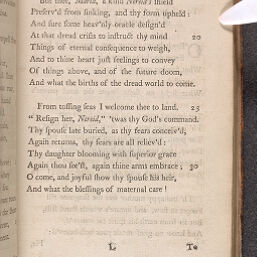 But thee, Maria, a kind Nereid's shield
Preserv'd from sinking, and thy form upheld:
And sure some heav'nly oracle design'd
At that dread crisis to instruct thy mind 20
Things of eternal consequence to weigh,
And to thine heart just feelings to convey
Of things above, and of the future doom,
And what the births of the dread world to come.
From tossing seas I welcome thee to land. 25
"Resign her, Nereid," 'twas thy God's command.
Thy spouse late buried, as thy fears conceiv'd,
Again returns, thy fears are all reliev'd:
Thy daughter blooming with superior grace
Again thou see'st, again thine arms embrace; 30
O come, and joyful show thy spouse his heir,
And what the blessings of maternal care!
L To